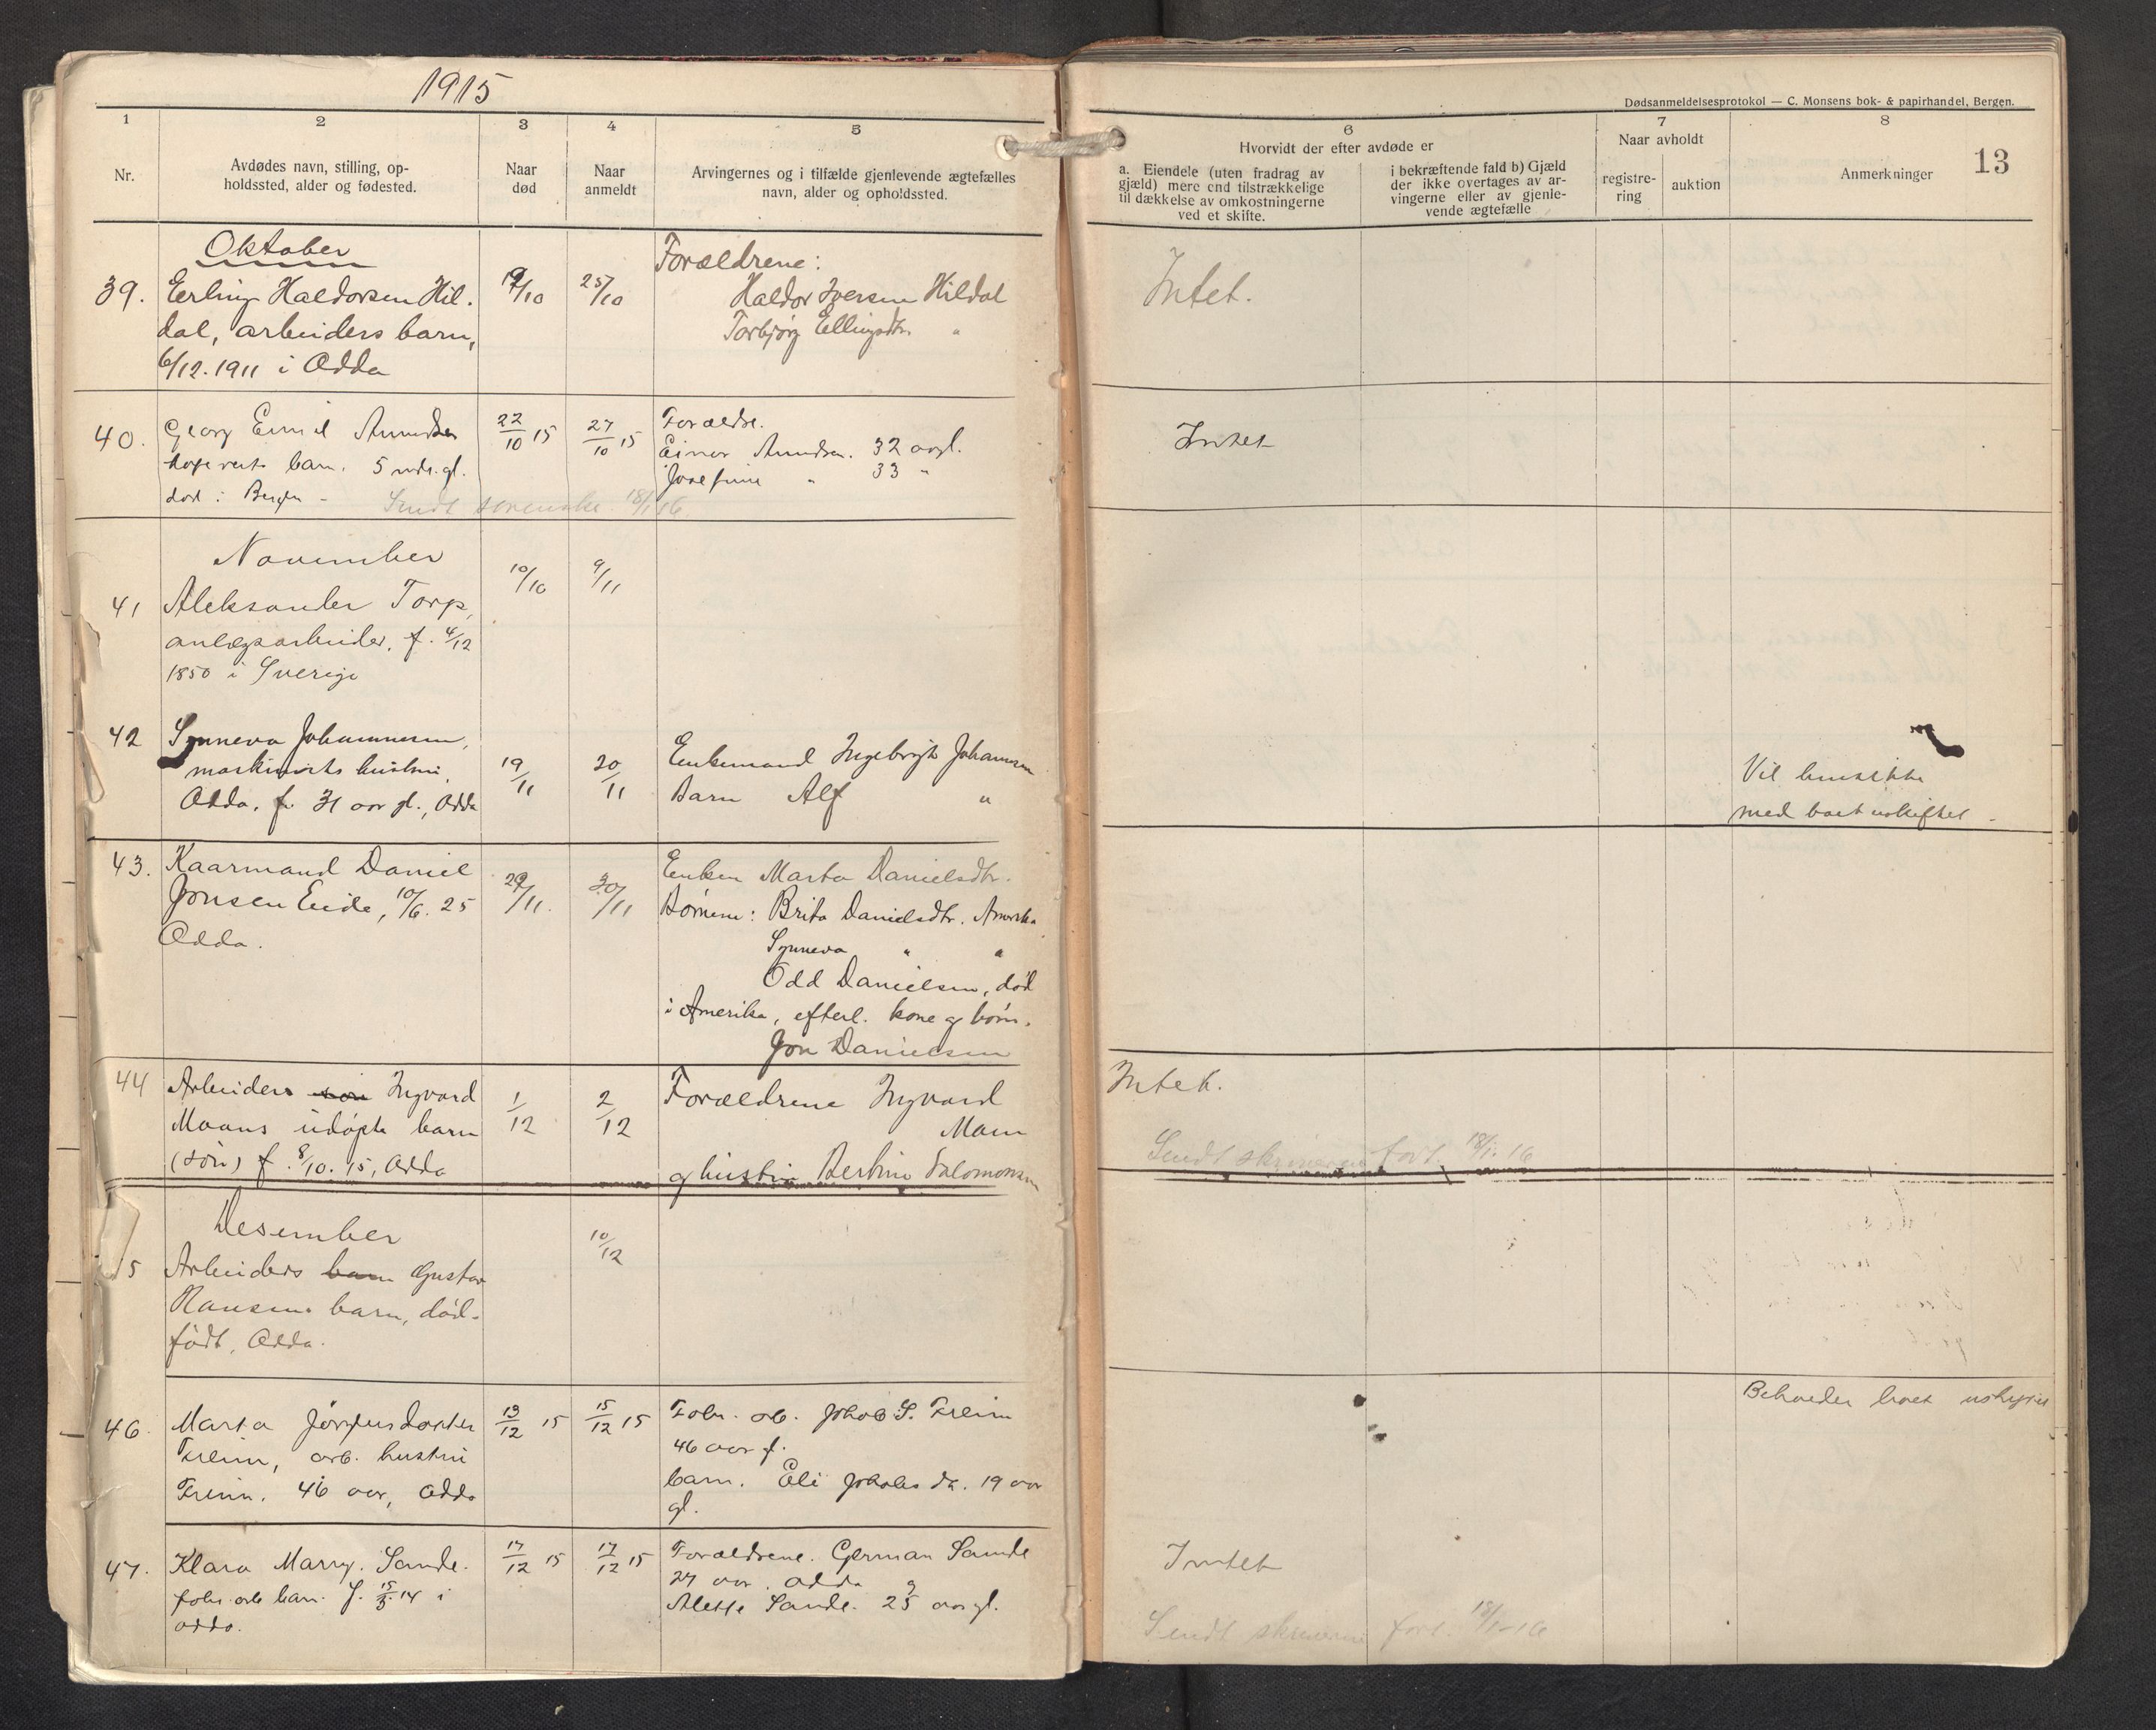 1915
Dødsanmeldelsesprotokol — C. Monsens bok- & papirhandel, Bergen.
13
1
Nr.
2
Avdødes navn, stilling, op-
holdssted, alder og fødested.
3
Naar
død
4
Naar
anmeldt
5
Arvingernes og i tilfælde gjenlevende ægtefælles
navn, alder og opholdssted.
6
Hvorvidt der efter avdøde er
a. Eiendele (uten fradrag av
gjæld) mere end tilstrækkelige
til dækkelse av omkostningerne
ved et skifte.
i bekræftende fald b) Gjæld
der ikke overtages av ar-
vingerne eller av gjenle-
vende ægtefælle
7
Naar avholdt
registre-
ring
auktion
8
Anmerkninger
Oktober
39.
Erling Haldorsen Hil-
dal, arbeiders barn,
6/12.1911 i Odda
19/10
25/10
Forældrene:
Haldor Iversen Hildal
Torbjørg Ellingsdtr. "
Intet.
40.
Georg Emil Amundsen
barn. 5 mdr. gl.
død i Bergen -
22/10 15
27/10 15
Forældre.
Einar Amundsen. 32 aargl.
Josefine " 33 "
Intet
Sendt sorenskr. 18/1 16.
November
41
Aleksander Torp,
anlægsarbeider, f. 4/12
1850 i Sverige
10/10
9/11
42
Synneva Johannesen,
maskinists hustru,
Odda, f. 31 aar gl., Odda
19/11
20/11
Enkemand Ingebrigt Johannesen
Barn Alf "
Vil hensitte
med boet uskiftet -
43.
Kaarmand Daniel
Jonsen Eide, 10/6. 25
Odda.
29/11.
30/11
Enken Marta Danielsdtr.
Børnene: Brita Danielsdtr. Amerika
Synneva " "
Odd Danielsen, død
i Amerika, efterl. kone og børn.
Jon Danielsen
44
Arbeiders søn Ingvard
Moans udøpte barn
(søn) f. 8/10. 15, Odda
1/12
2/12
Forældrene Ingvard
Moen
og hustru Bertine Salomonsen
Intet.
Sendt skriveren fort. 18/1. 16
Desember
5
Arbeiders barn Gustav
Hansens barn, død-
født, Odda.
10/12
46.
Marta Jørgensdotter
Freim, arb. hustru
Freim. 46 aar, Odda
13/12 15
15/12 15
Fabr. arb. Jakob S. Freim
46 aar f.
barn. Eli Jakobs da. 19 aar
gl.
Beholder boet uskiftet
47.
Klara Marry. Sande.
fabr. arb barn. f. 15/3 14 i
Odda.
17/12 15
17/12 15
Forældrene. German Sande
27 aar. Odda og
Alette Sande. 25 aar gl.
Intet
Sendt skriveren fort. 18/1-16